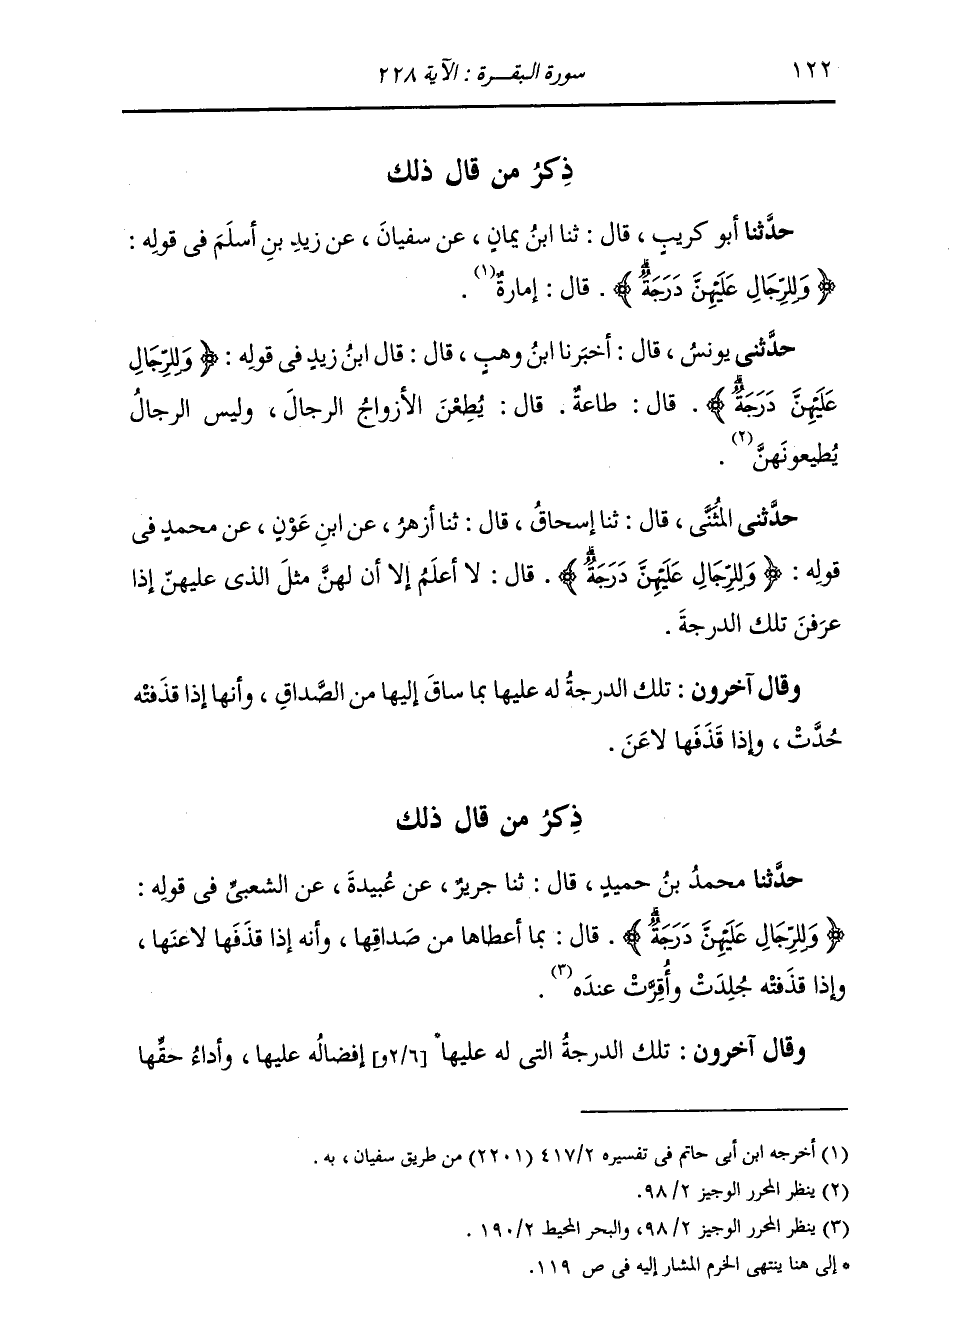 ١٢٢
سورة البقرة : الآية ٢٢٨
ذِكرُ من قال ذلك
حدَّثنا أبو كريبٍ ، قال : ثنا ابنُ يمانٍ ، عن سفيانَ ، عن زيدِ بنِ أسلَمَ فى قولِه :
﴿ وَلِلرِّجَالِ عَلَيْهِنَّ دَرَجَةٌۗ ﴾ . قال : إمارةٌ(١) .
حدَّثنى يونسُ ، قال : أخبَرنا ابنُ وهبٍ ، قال : قال ابنُ زيدٍ فى قولِه : ﴿ وَلِلرِّجَالِ
عَلَيْهِنَّ دَرَجَةٌۗ ﴾ . قال : طاعةٌ . قال : يُطِعْنَ الأزواجُ الرجالَ ، وليس الرجالُ
يُطيعونَهنَّ(٢) .
حدَّثنى المُثَنَّى ، قال : ثنا إسحاقُ ، قال : ثنا أزهرُ ، عن ابنِ عَوْنٍ ، عن محمدٍ فى
قولِه : ﴿ وَلِلرِّجَالِ عَلَيْهِنَّ دَرَجَةٌۗ ﴾ . قال : لا أعلَمُ إلا أن لهنَّ مثلَ الذى عليهنّ إذا
عرَفنَ تلك الدرجةَ .
وقال آخرون : تلك الدرجةُ له عليها بما ساقَ إليها من الصَّداقِ ، وأنها إذا قذَفتْه
حُدَّتْ ، وإذا قَذَفَها لاعَنَ .
ذِكرُ من قال ذلك
حدَّثنا محمدُ بنُ حميدٍ ، قال : ثنا جريرٌ ، عن عُبيدةَ ، عن الشعبىِّ فى قولِه :
﴿ وَلِلرِّجَالِ عَلَيْهِنَّ دَرَجَةٌۗ ﴾ . قال : بما أعطاها من صَداقِها ، وأنه إذا قذَفَها لاعنَها ،
وإذا قذَفتْه جُلِدَتْ وأُقِرَّتْ عندَه(٣) .
وقال آخرون : تلك الدرجةُ التى له عليها* [٢/٦و] إفضالُه عليها ، وأداءُ حقِّها
(١) أخرجه ابن أبى حاتم فى تفسيره ٤١٧/٢ (٢٢٠١) من طريق سفيان ، به .
(٢) ينظر المحرر الوجيز ٩٨/٢.
(٣) ينظر المحرر الوجيز ٩٨/٢، والبحر المحيط ١٩٠/٢ .
* إلى هنا ينتهى الخرم المشار إليه فى ص ١١٩.